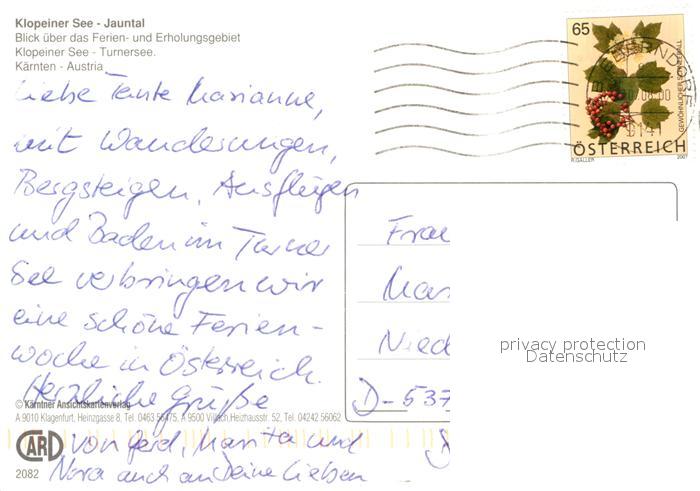 Klopeiner See - Jauntal
Blick über das Ferien- und Erholungsgebiet
Klopeiner See - Turnersee.
Kärnten - Austria
Liebe Tante Marianne,
mit Wanderungen,
Bergsteigen, Ausflügen
und Baden im Turner
See verbringen wir
eine schöne Ferien-
woche in Österreich.
Herzliche Grüße
von Gerd, Marita und
Nora auch an Deine Lieben
© Kärntner Ansichtskartenverlag
A 9010 Klagenfurt, Heinzgasse 8, Tel. 0463 56475, A 9500 Villach, Heizhausstr. 52, Tel. 04242 56062
CARD
2082
65
GEWÖHNLICHER SCHNEEBALL
ÖSTERREICH
R.GALLER
2007
Frau
Mar
Nied
D-537
privacy protection
Datenschutz